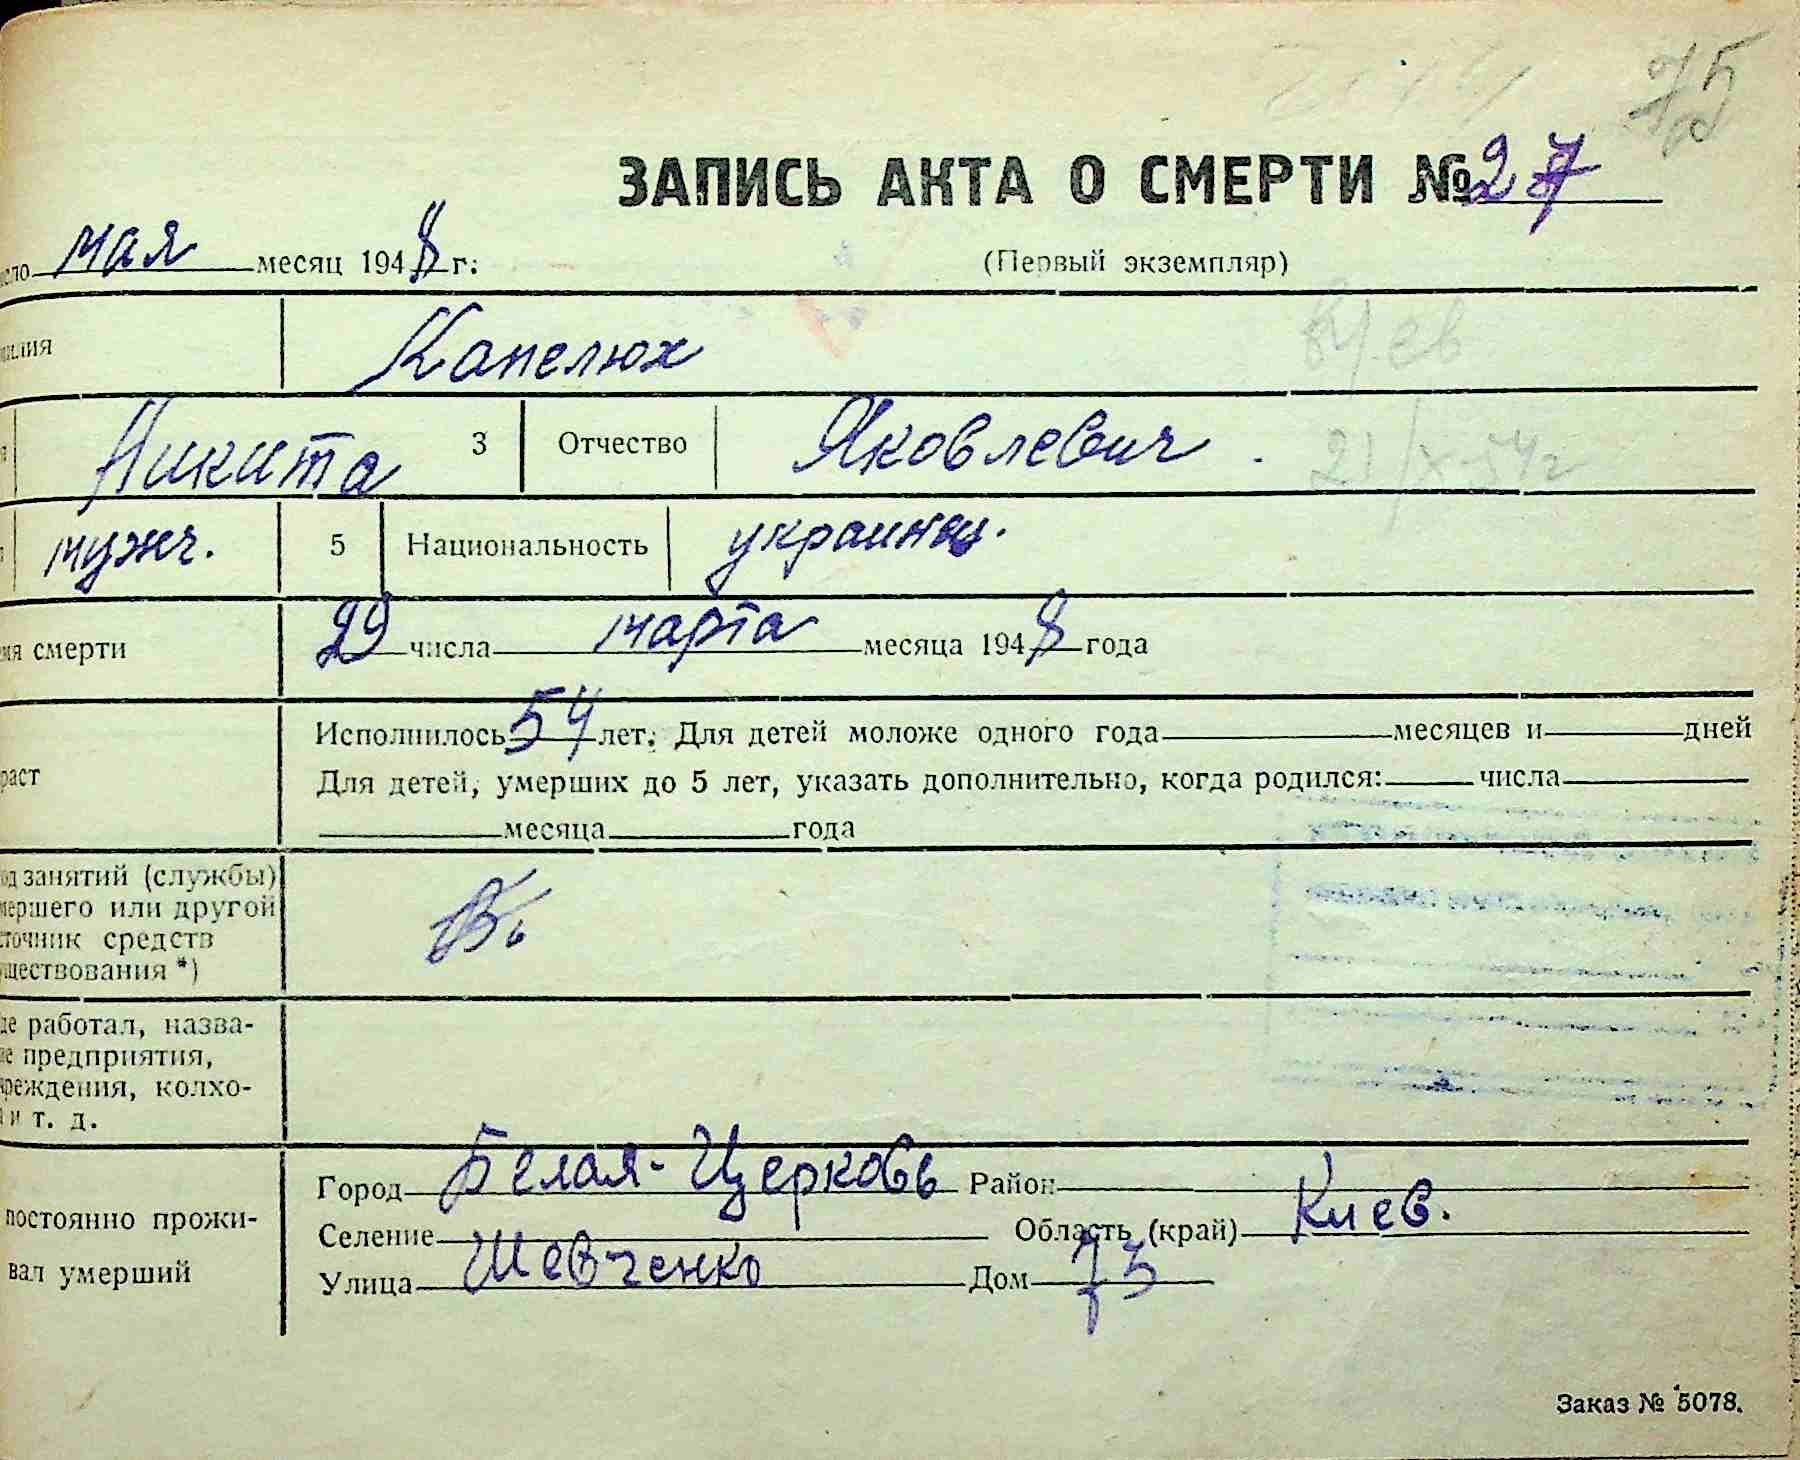 75
ЗАПИСЬ АКТА О СМЕРТИ № 27
мая месяц 1948 г.
(Первый экземпляр)
Капелюх
Никита 3 Отчество Яковлевич
21/X-54г
мужч. 5 Национальность украинец.
смерти 29 числа марта месяца 1948 года
Исполнилось 54 лет. Для детей моложе одного года месяцев и дней
раст Для детей, умерших до 5 лет, указать дополнительно, когда родился: числа
месяца года
од занятий (службы)
мершего или другой
сточник средств
уществования *)
де работал, назва-
ие предприятия,
чреждения, колхо-
и т. д.
Город Белая-Церковь Район
постоянно прожи-
Селение Область (край) Киев.
вал умерший
Улица Шевченко Дом 73
Заказ № 5078.